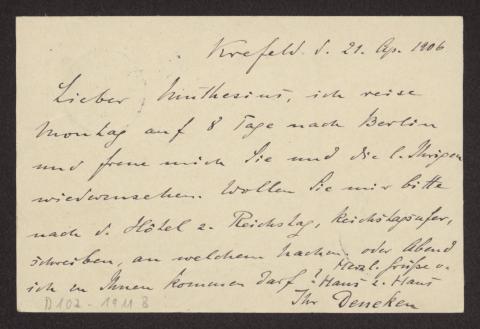 Krefeld d. 21. Ap. 1906
Lieber Muthesius, ich reise
Montag auf 8 Tage nach Berlin
und freue mich Sie und die l. Ihrigen
wiederzusehen. Wollen Sie mir bitte
nach d. Hôtel z. Reichstag, Reichstagsufer,
schreiben, an welchem Nachm. oder Abend
ich zu Ihnen kommen darf?
Herzl. Grüße v.
Haus z. Haus
Ihr Deneken
D102-1911 B